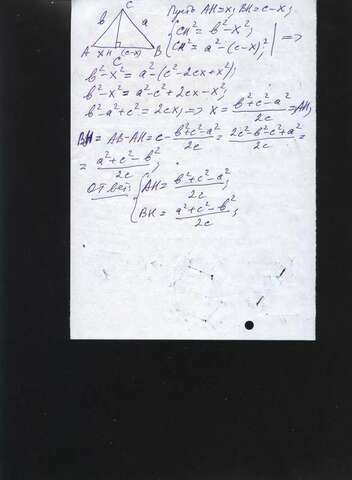 C
Пусть AH=x; BH=c-x;
b a
{CH²=b²-x²;
{CH²=a²-(c-x)²; | =>
A x H (c-x) B
c
b²-x²=a²-(c²-2cx+x²);
b²-x²=a²-c²+2cx-x²;
b²-a²+c²=2cx; => x= (b²+c²-a²)/2c =AH;
BH=AB-AH=c- (b²+c²-a²)/2c = (2c²-b²-c²+a²)/2c =
= (a²+c²-b²)/2c;
ответ {AH= (b²+c²-a²)/2c;
{BH= (a²+c²-b²)/2c;